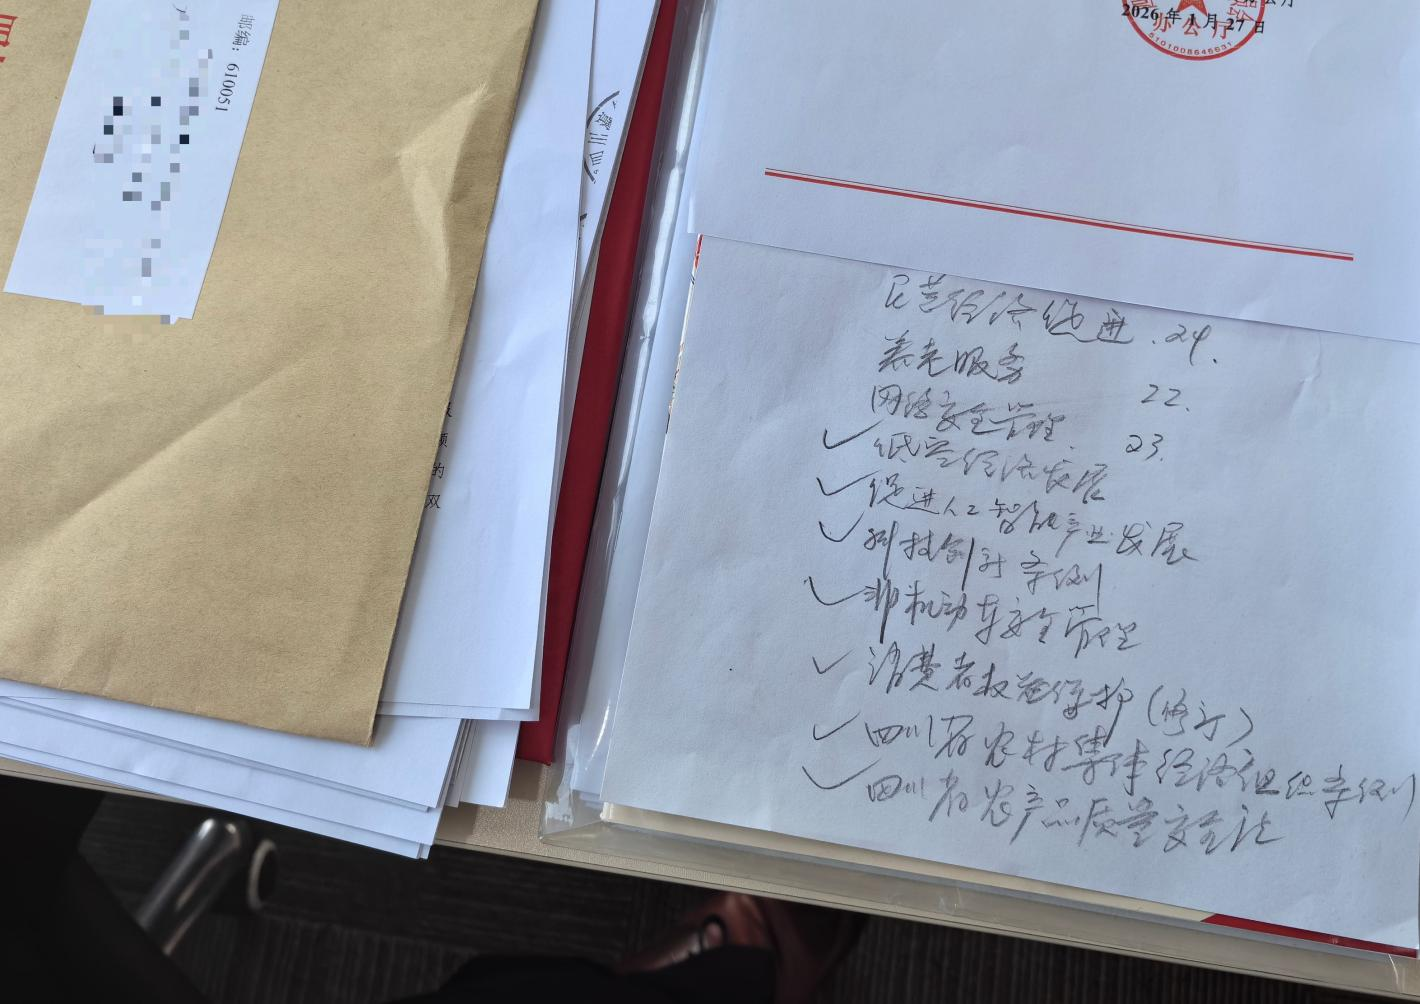 邮编：610051
2026年1月27日
办公厅
5101008646531
的
双
民营经济促进. 24.
养老服务 22.
网络安全管理. 23.
✓ 低空经济发展
✓ 促进人工智能产业发展
✓ 科技创新条例
✓ 非机动车安全管理
✓ 消费者权益保护（修订）
✓ 四川省农村集体经济组织条例
✓ 四川省农产品质量安全法